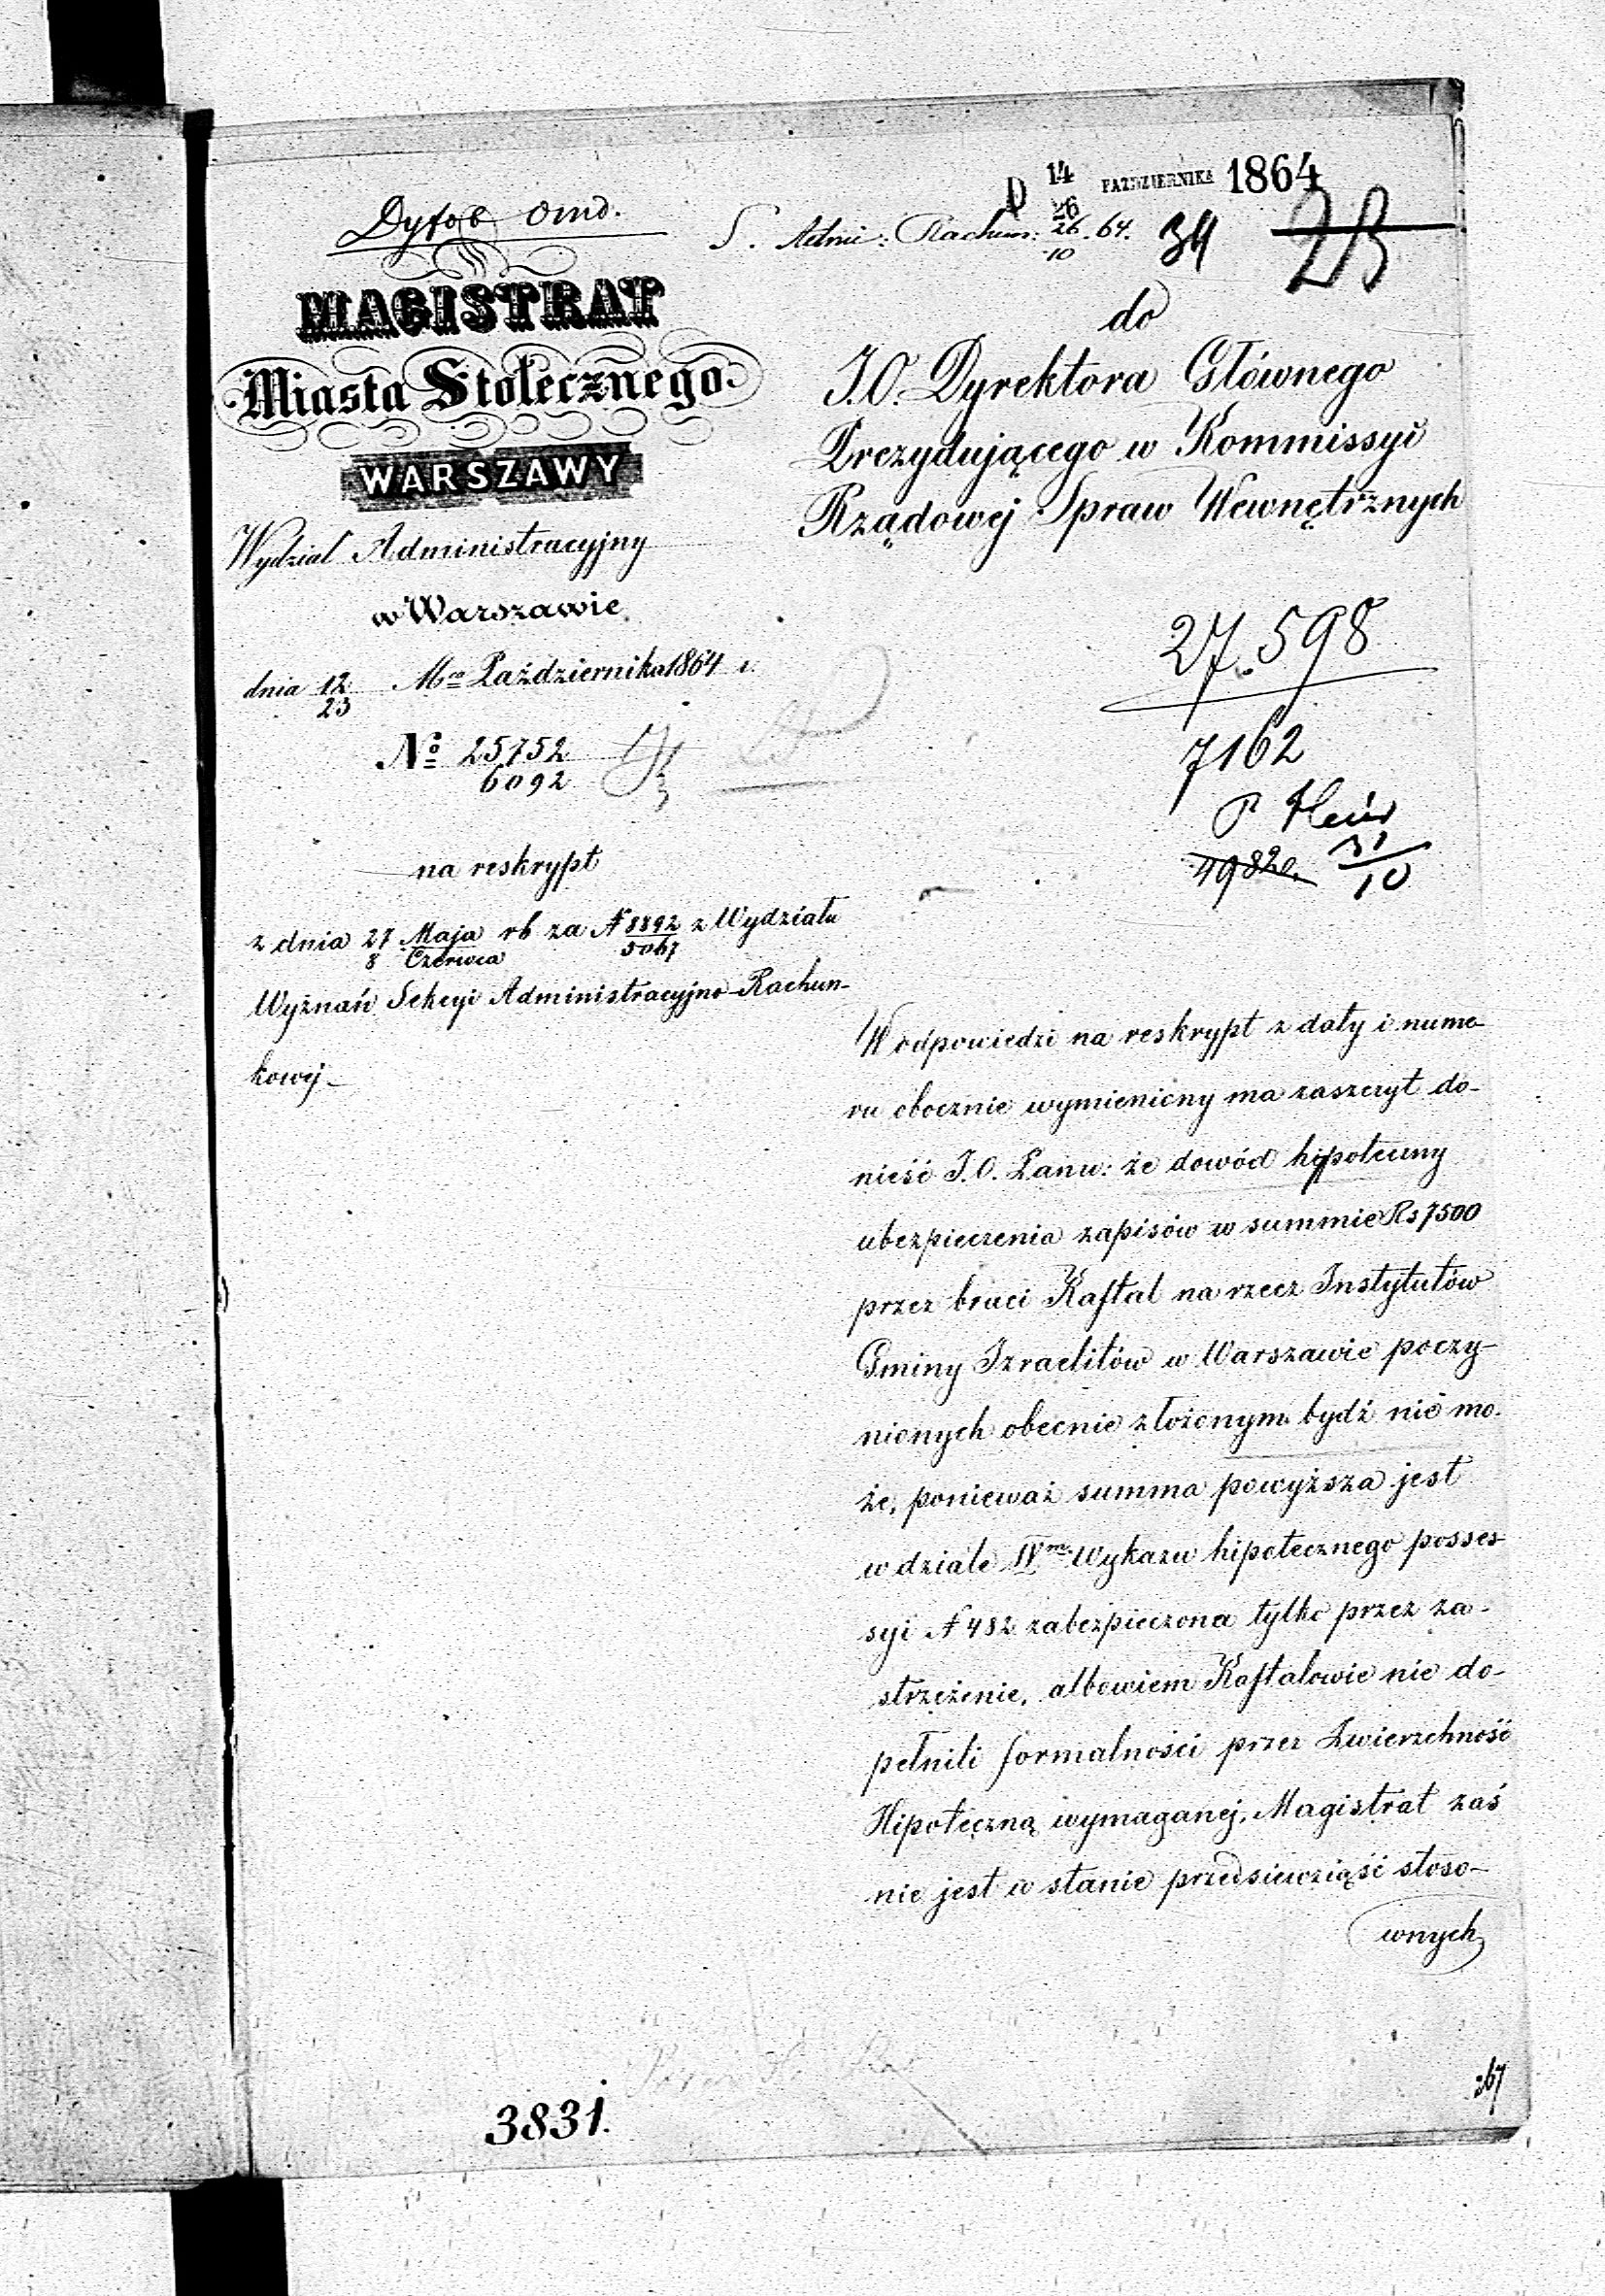 D 14/26 PAŹDZIERNIKA 1864
S. Admi: Rachun: 26/10. 64. 34 23
MAGISTRAT
Miasta Stołecznego
WARSZAWY
Wydział Administracyjny
w Warszawie
dnia 12/23 Mca Października 1864 r.
No 25752/6092
na reskrypt
z dnia 27 Maja/8 Czerwca rb za N 8892/5067 z Wydziału
Wyznań Sekcyi Administracyjno-Rachun-
kowej
do
J.O. Dyrektora Głównego
Prezydującego w Kommissyi
Rządowej Spraw Wewnętrznych
27.598
7162
P
49820. 31/10
W odpowiedzi na reskrypt z daty i nume-
ru obocznie wymieniony ma zaszczyt do-
nieść J.O. Panu: że dowód hipoteczny
ubezpieczenia zapisów w summie Rs 7500
przez braci Kaftal na rzecz Instytutów
Gminy Izraelitów w Warszawie poczy-
nionych obecnie złożonym bydź nie mo-
że, ponieważ summa powyższa jest
w dziale IVm Wykazu hipotecznego posses-
syi N 482 zabezpieczona tylko przez za-
strzeżenie, albowiem Kaftalowie nie do-
pełnili formalności przez Zwierzchność
Hipoteczną wymaganej, Magistrat zaś
nie jest w stanie przedsiewziąść stoso-
wnych
267
3831.